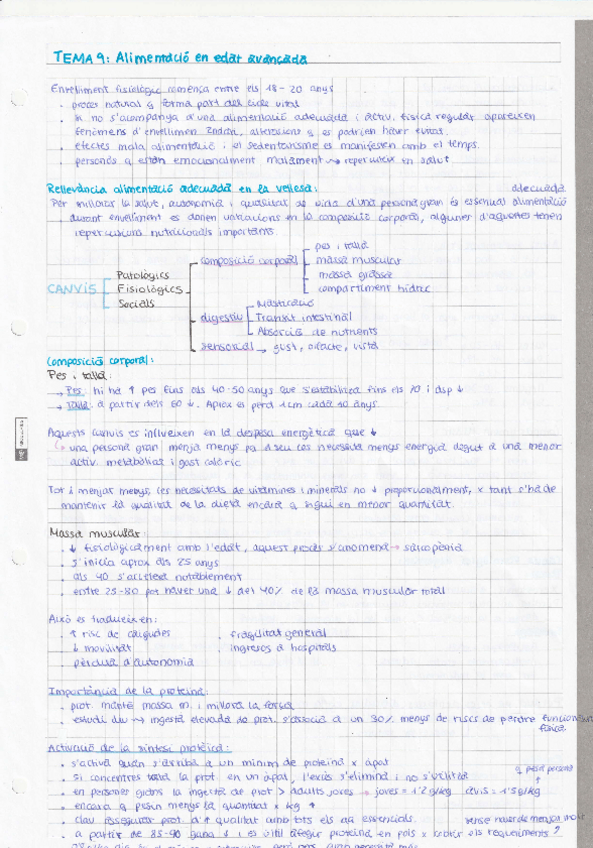 TEMA 9: Alimentació en edat avançada
Envelliment fisiològic comença entre els 18-20 anys
. procés natural q forma part del cicle vital
. si no s'acompanya d'una alimentació adequada i activ. física regular apareixen
fenòmens d'envelliment 2ndari, alteracions q es podrien haver evitat.
. efectes mala alimentació i el sedentarisme es manifesten amb el temps.
. persones q estan emocionalment malament → repercuteix en salut.
Rellevància alimentació adequada en la vellesa:
adequada
Per millorar la salut, autonomia i qualitat de vida d'una persona gran és essencial alimentació
. durant envelliment es donen variacions en la composició corporal, algunes d'aquestes tenen
repercussions nutricionals importants.
CANVIS
Patològics
Fisiològics
Socials
composició corporal
pes i talla
massa muscular
massa grassa
compartiment hídric
digestiu
Masticació
Transit intestinal
Absorció de nutrients
sensorial → gust, olfacte, vista
Composició corporal:
Pes i talla:
→ Pes: hi ha ↑ pes fins als 40-50 anys que s'estabilitza fins els 70 i dsp ↓
→ Talla: a partir dels 60 ↓. Aprox es perd 1cm cada 10 anys.
Aquests canvis es influeixen en la despesa energètica que ↓
una persona gran menja menys pq el seu cos necessita menys energia degut a una menor
activ. metabòlica i gast calòric
Tot i menjar menys, les necessitats de vitamines i minerals no ↓ proporcionalment, x tant s'ha de
mantenir la qualitat de la dieta encara q sigui en menor quantitat.
Massa muscular:
. ↓ fisiològicament amb l'edat, aquest procés s'anomena → sarcopènia
. s'inicia aprox als 25 anys
. als 40 s'accelera notablement
. entre 25-80 pot haver una ↓ del 40% de la massa muscular total
Això es tradueix en:
. ↑ risc de caigudes . fragilitat general
. ↓ mobilitat . ingressos a hospitals
. pèrdua d'autonomia
Importància de la proteïna:
. prot. manté massa m. i millora la força
. estudi diu → ingesta elevada de prot. s'associa a un 30% menys de riscs de perdre funcional
física
Activació de la síntesi protèica:
. s'activa quan s'arriba a un mínim de proteïna x àpat
. si concentres tota la prot. en un àpat, l'excés s'elimina i no s'utilitza
. en persones grans la ingesta de prot > adults joves → joves = 1'2 g/kg avis = 1'5 g/kg
. encara q pesin menys la quantitat x kg ↑
. clau assegurar prot. d'↑ qualitat amb tots els aa essencials.
. a partir de 85-90 gana ↓ i és útil afegir proteïna en pols x cobrir els requeriments ?